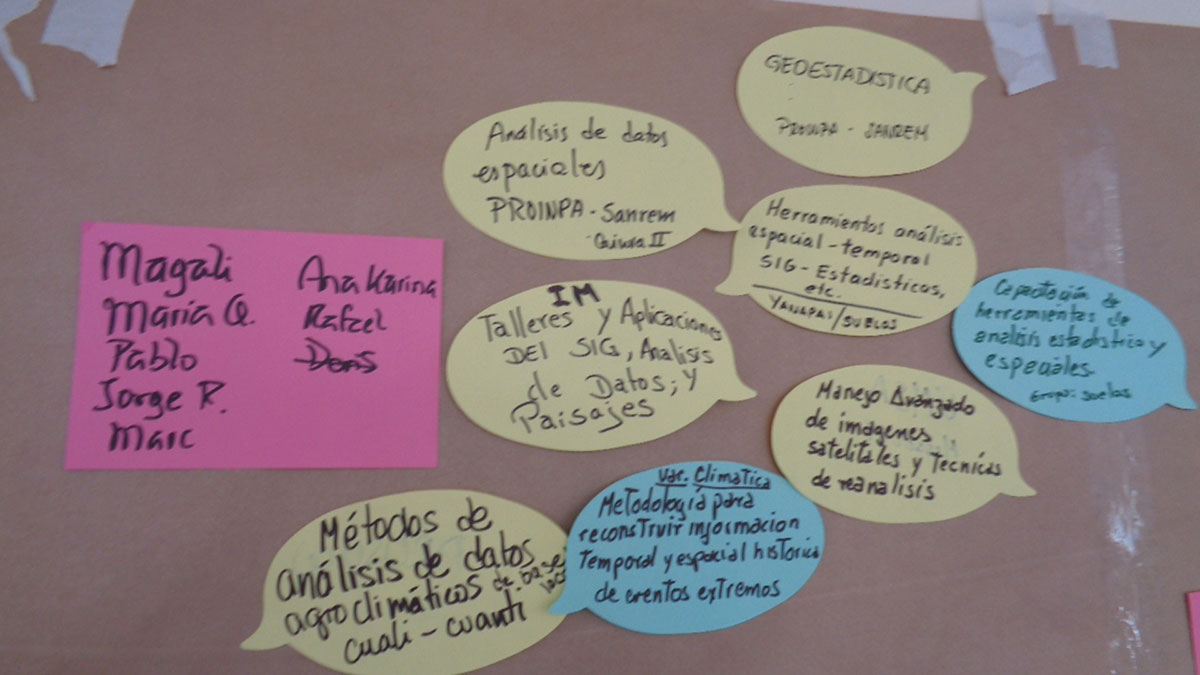 GEOESTADISTICA
PROINPA - SANREM
Análisis de datos
espaciales
PROINPA - Sanrem
Herramientas análisis
espacial - temporal
SIG - Estadisticos,
etc.
YANAPAI/SUELOS
Magali
María Q.
Pablo
Jorge R.
Marc
Ana Karina
Rafael
Doris
IM
Talleres y Aplicaciones
DEl SIG, Analisis
de Datos; y
Paisajes
Capacitación de
herramientas de
analisis estadistico y
especiales.
Grupo: suelos
Manejo Avanzado
de imágenes
satelitales y Tecnicas
de reanalisis
Var. Climatica
Metodología para
reconstruir informacion
Temporal y espacial historica
de eventos extremos
Métodos de
análisis de datos
agroclimáticos de base
cuali - cuanti